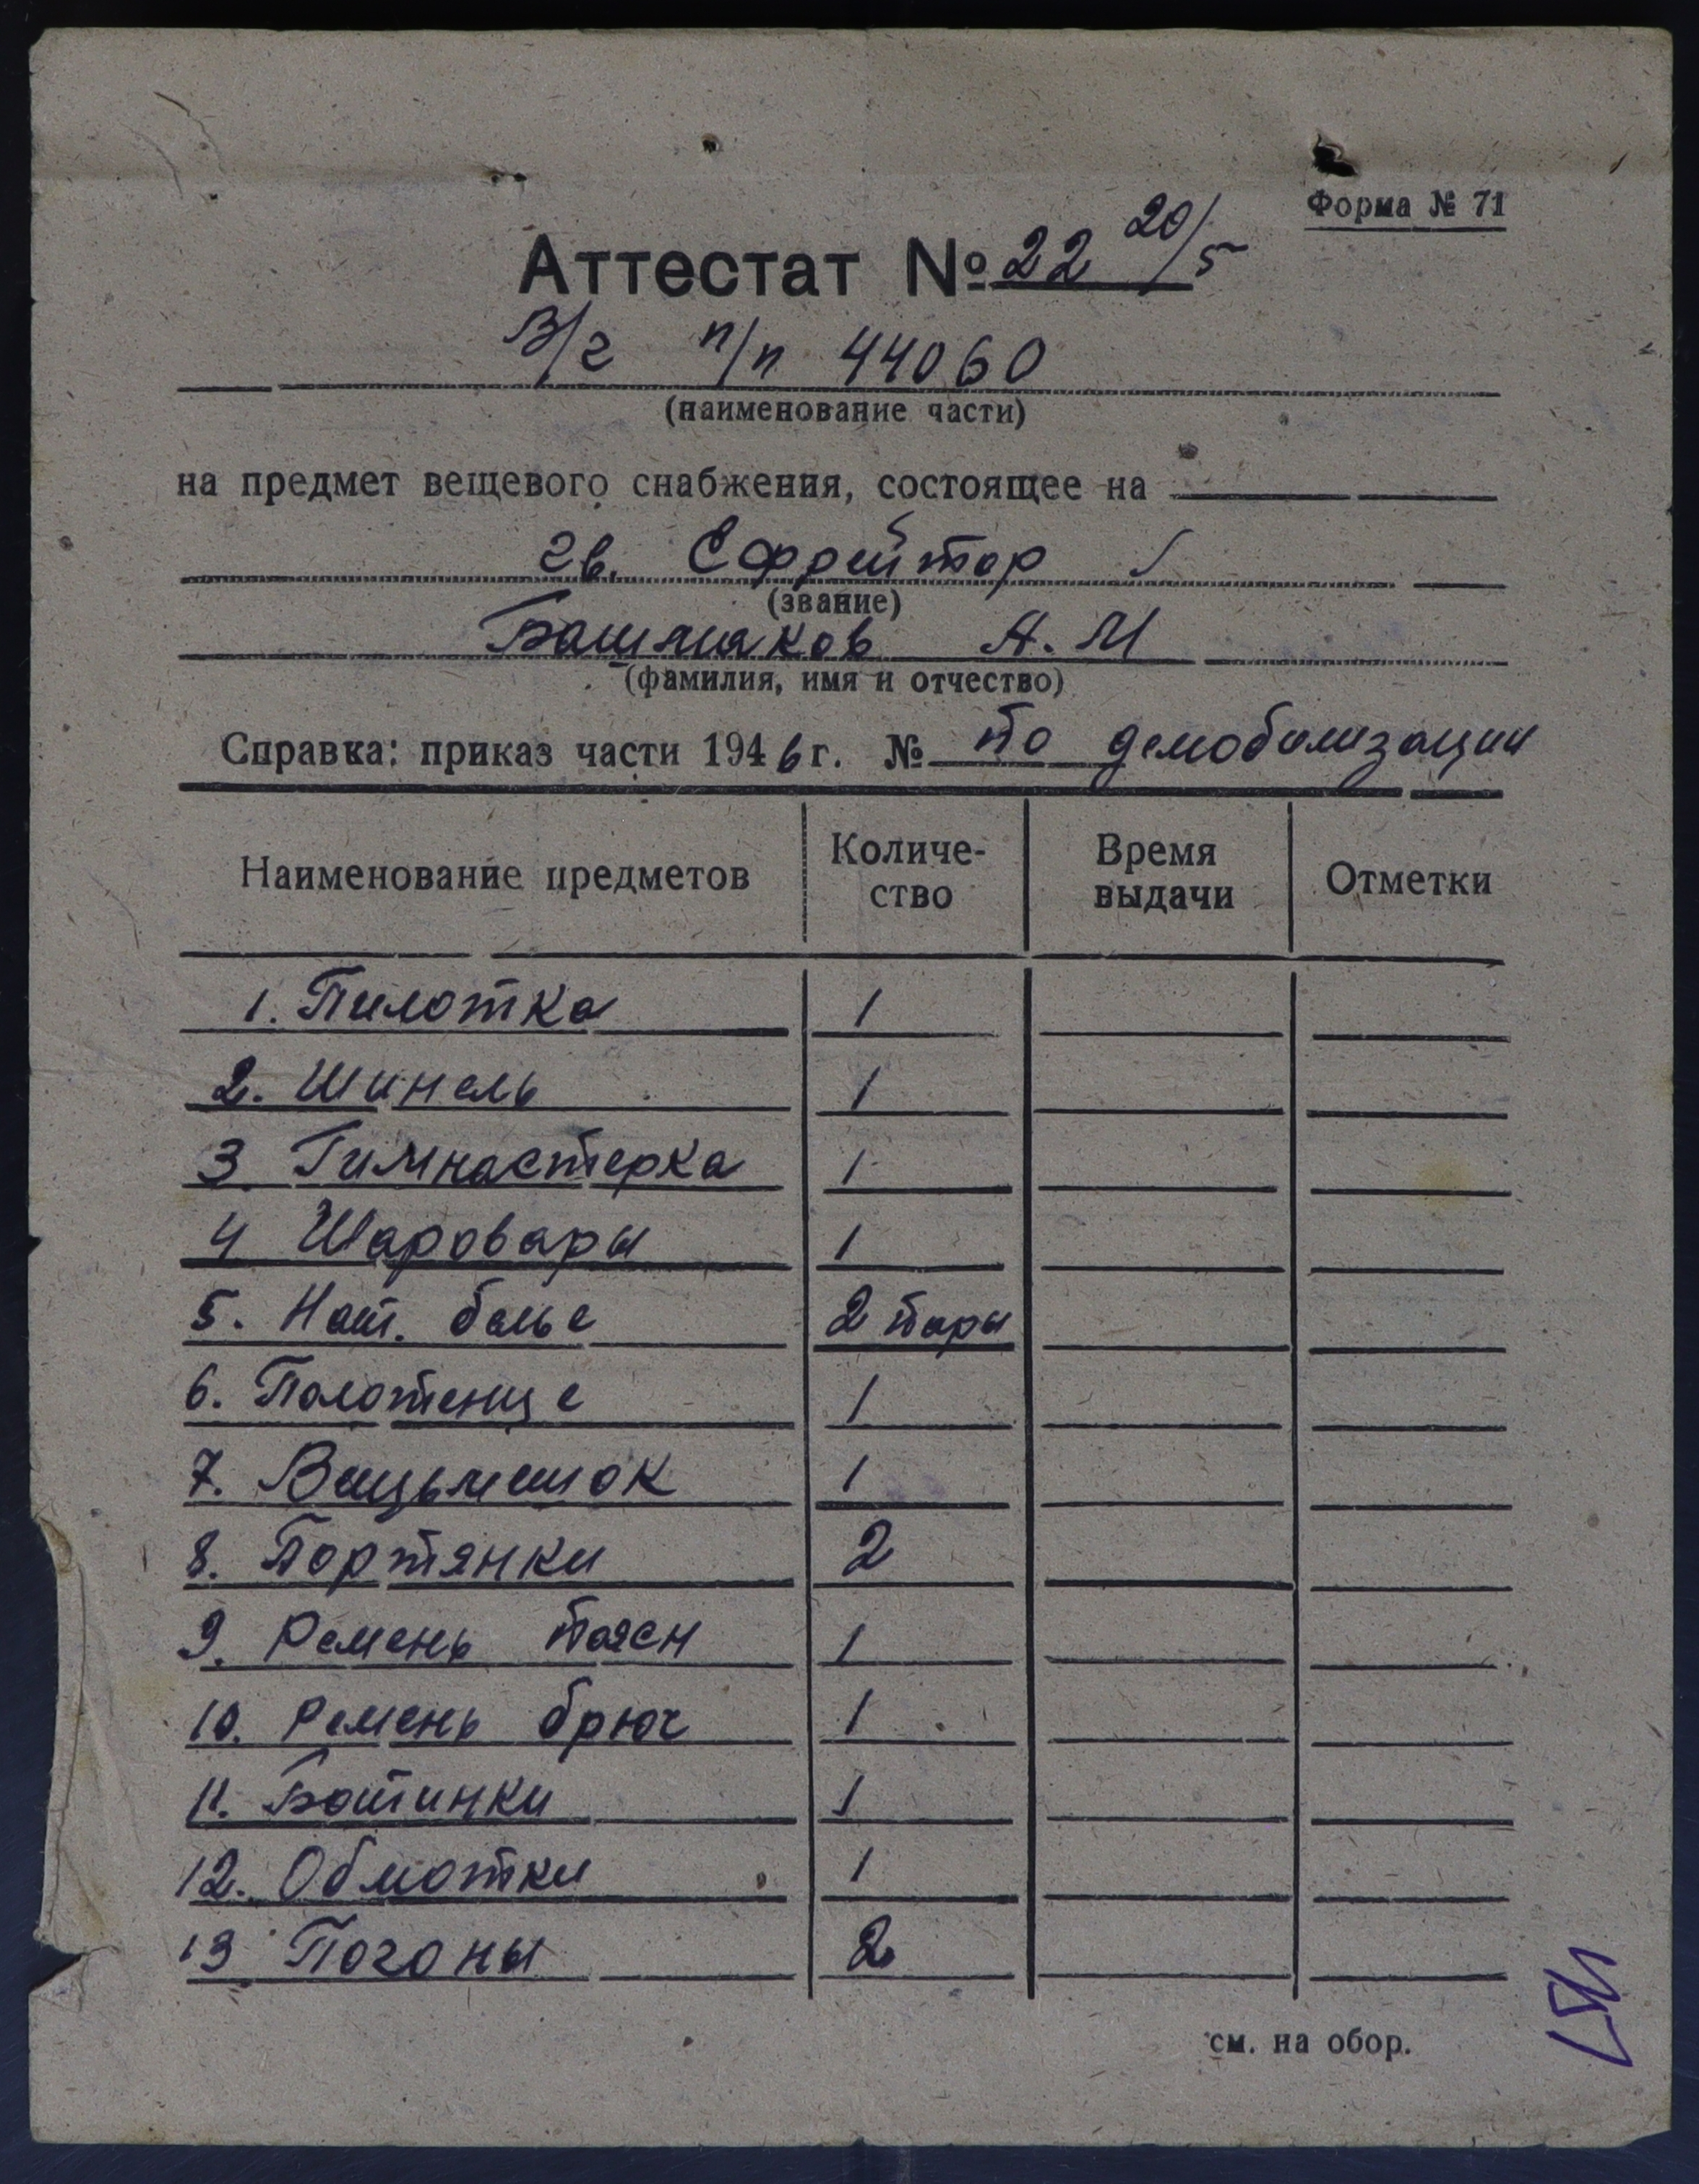 Форма № 71
Аттестат № 22 20/5
В/ч п/п 44060
(наименование части)
на предмет вещевого снабжения, состоящее на
гв. Ефрейтор
(звание)
Башмаков А. М
(фамилия, имя и отчество)
Справка: приказ части 1946 г. № по демобилизации
Наименование предметов Количе-ство Время выдачи Отметки
1. Пилотка 1
2. Шинель 1
3 Гимнастерка 1
4 Шаровары 1
5. Нат. белье 2 пары
6. Полотенце 1
7. Вещьмешок 1
8. Портянки 2
9. Ремень поясн 1
10. Ремень брюч 1
11. Ботинки 1
12. Обмотки 1
13 Погоны 2
см. на обор.